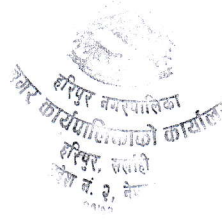 हरिपुर नगरपालिका
नगर कार्यपालिकाको कार्यालय
हरिपुर, सर्लाही
प्रदेश नं. २, नेपाल